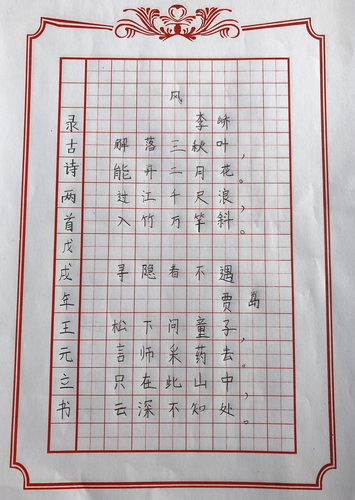 风
李峤
解落三秋叶，
能开二月花。
过江千尺浪，
入竹万竿斜。
寻隐者不遇
贾岛
松下问童子，
言师采药去。
只在此山中，
云深不知处。
录古诗两首戊戌年王元立书